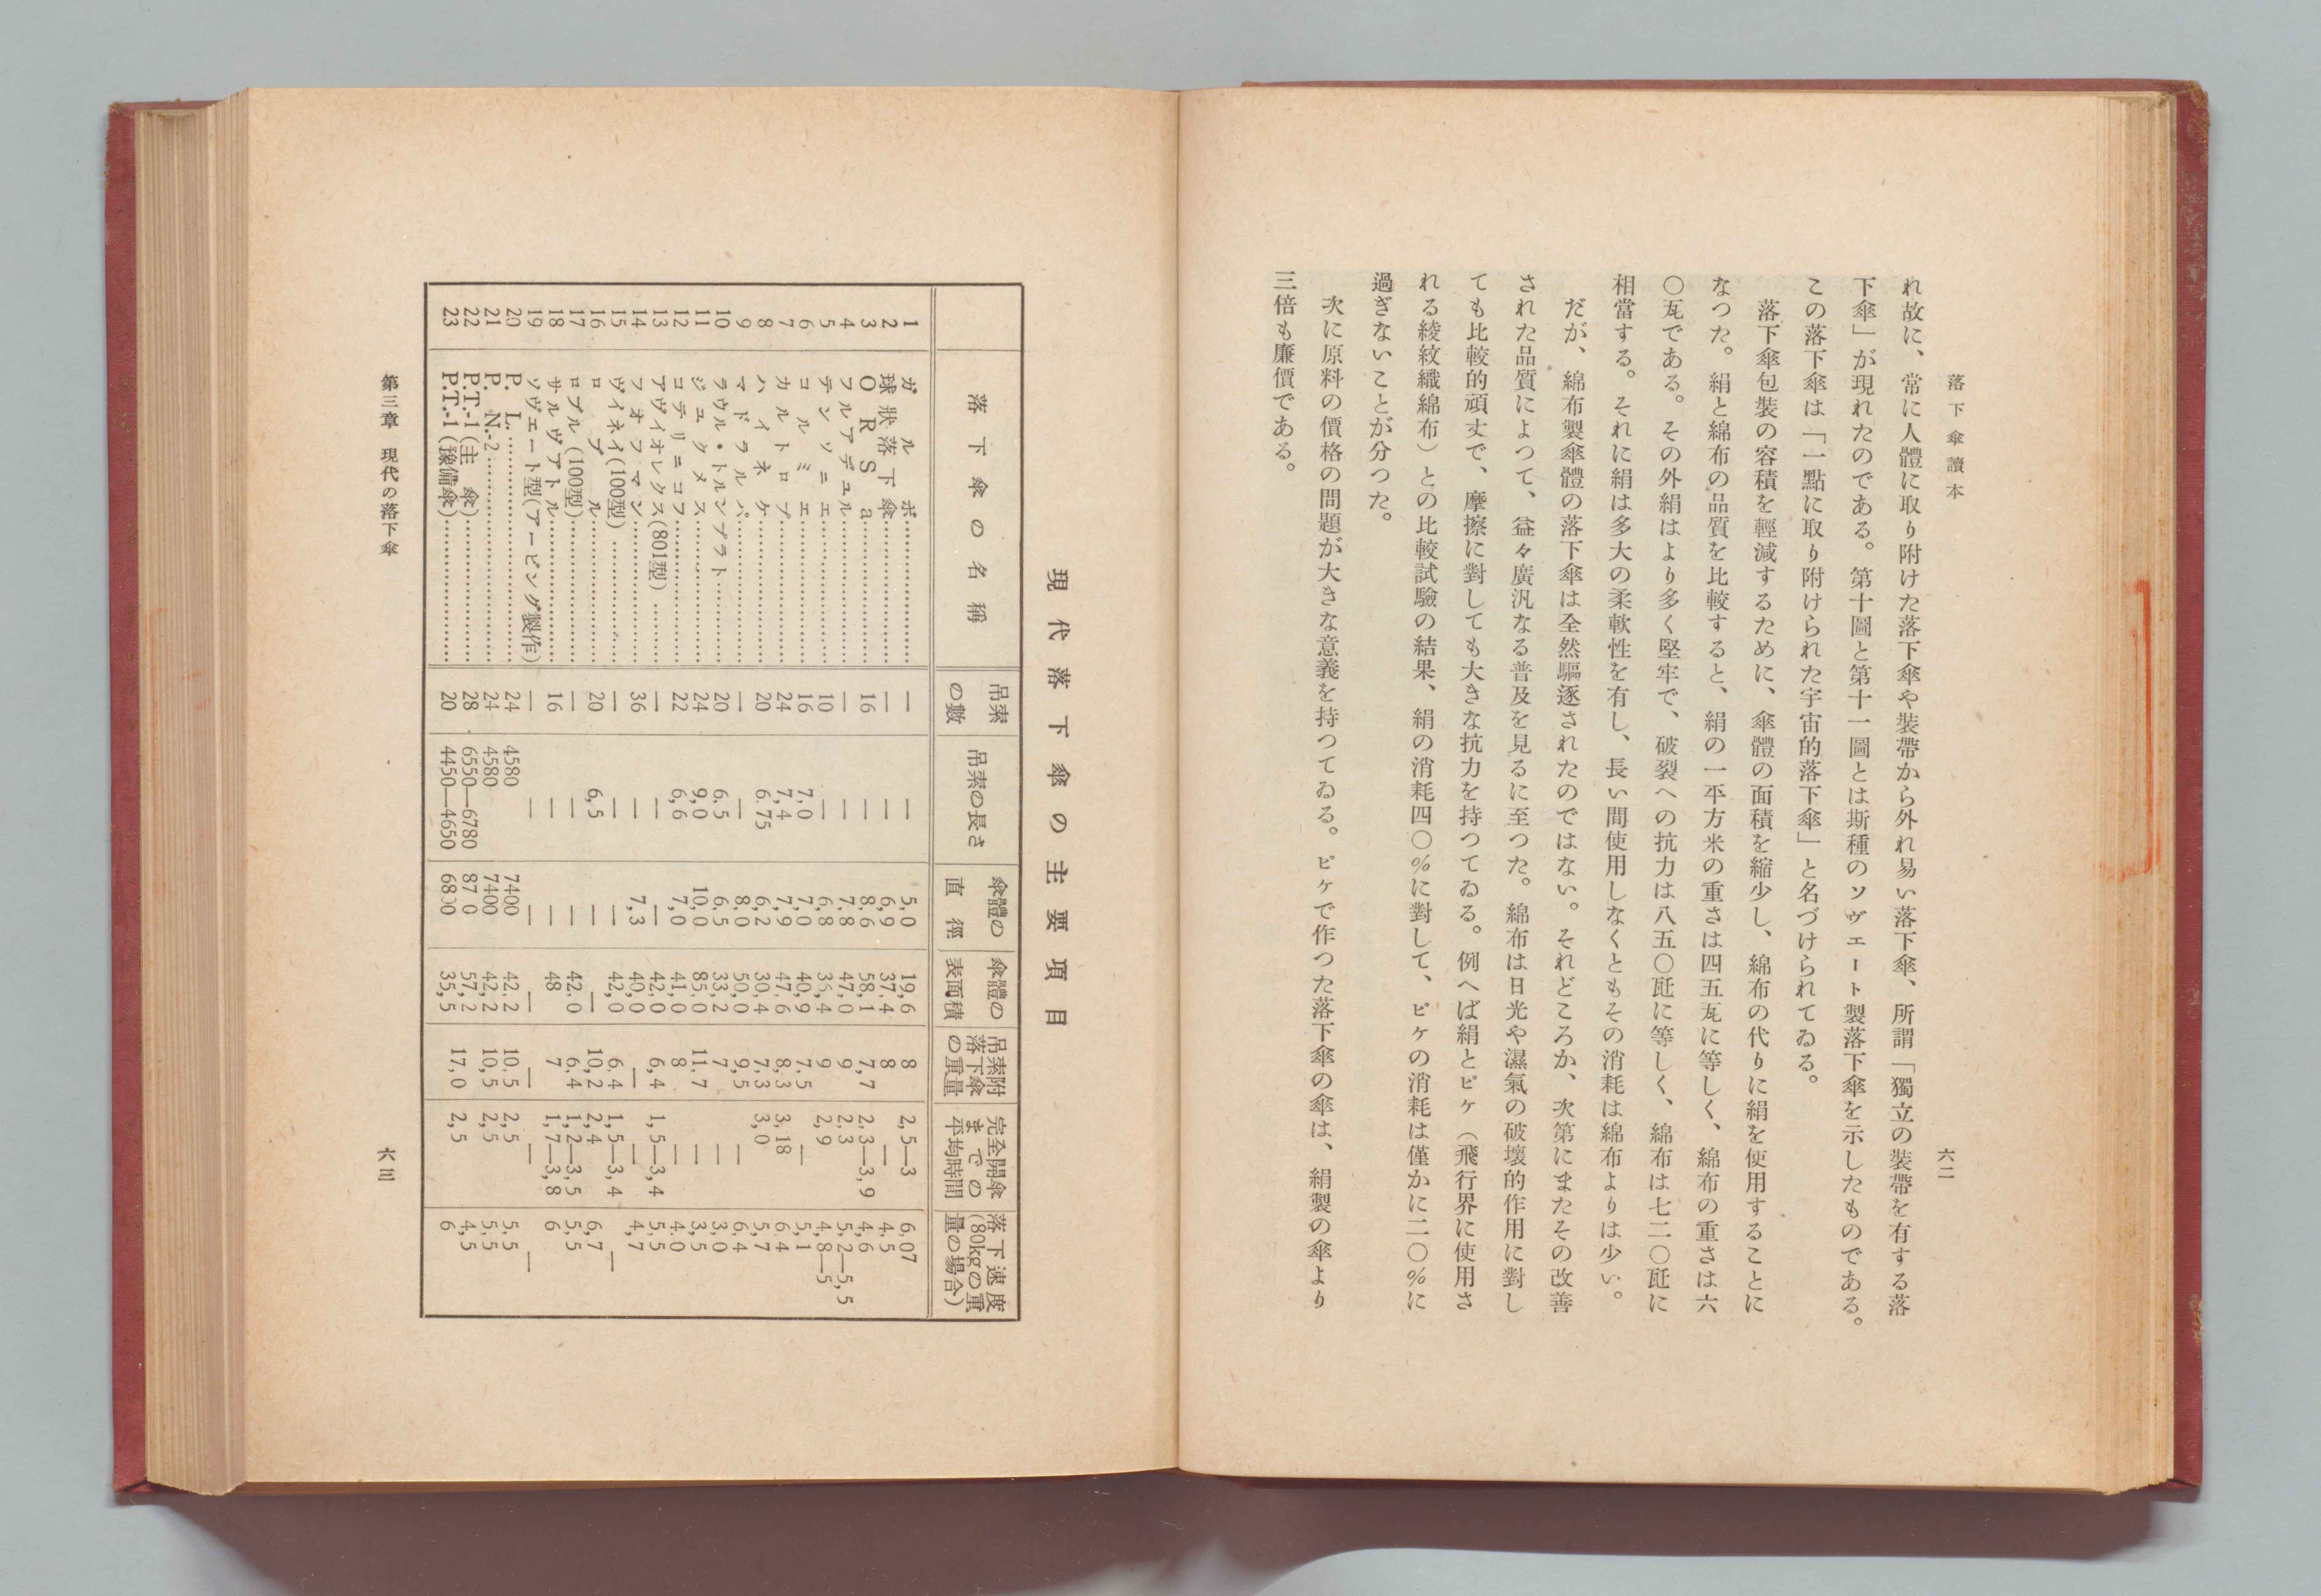 落下傘讀本
六二
れ故に、常に人體に取り附けた落下傘や裝帶から外れ易い落下傘、所謂「獨立の裝帶を有する落
下傘」が現れたのである。第十圖と第十一圖とは斯種のソヴエート製落下傘を示したものである。
この落下傘は「一點に取り附けられた宇宙的落下傘」と名づけられてゐる。
落下傘包裝の容積を輕減するために、傘體の面積を縮少し、綿布の代りに絹を使用することに
なつた。絹と綿布の品質を比較すると、絹の一平方米の重さは四五瓦に等しく、綿布の重さは六
〇瓦である。その外絹はより多く堅牢で、破裂への抗力は八五〇瓩に等しく、綿布は七二〇瓩に
相當する。それに絹は多大の柔軟性を有し、長い間使用しなくともその消耗は綿布よりは少い。
だが、綿布製傘體の落下傘は全然驅逐されたのではない。それどころか、次第にまたその改善
された品質によつて、益々廣汎なる普及を見るに至つた。綿布は日光や濕氣の破壞的作用に對し
ても比較的頑丈で、摩擦に對しても大きな抗力を持つてゐる。例へば絹とピケ（飛行界に使用さ
れる綾紋織綿布）との比較試驗の結果、絹の消耗四〇％に對して、ピケの消耗は僅かに二〇％に
過ぎないことが分つた。
次に原料の價格の問題が大きな意義を持つてゐる。ピケで作つた落下傘の傘は、絹製の傘より
三倍も廉價である。
現代落下傘の主要項目
落下傘の名稱 吊索の數 吊索の長さ 傘體の直徑 傘體の表面積 吊索附落下傘の重量 完全開傘までの平均時間 落下速度(80kgの重量の場合)
1 ガルボ…… — — 5,0 19,6 8 2,5—3 6,07
2 球狀落下傘…… — — 6,9 37,4 8 — 4,5
3 ORSa…… 16 — 8,6 58,1 7,7 2,3—3,9 4,6
4 フルアデュル…… — — 7,8 47,0 9 2,3 5,2—5,5
5 テンソニエ…… 10 — 6,8 35,4 9 2,9 4,8—5
6 コルミエ…… 16 7,0 7,0 40,9 7,5 — 5,1
7 カルトロプ…… 24 7,4 7,9 47,6 8,3 3,18 6,4
8 ハイネケ…… 20 6,75 6,2 30,4 7,3 3,0 5,7
9 マドラルパ…… — — 8,0 50,0 9,5 — 6,4
10 ラウル・トルンプラト…… 20 6,5 6,5 33,2 7 — 3,0
11 ジュクメス…… 24 9,0 10,0 85,0 11,7 — 3,5
12 コテリニコフ…… 22 6,6 7,0 41,0 8 — 4,0
13 アヴイオレクス(801型)…… — — — 42,0 6,4 1,5—3,4 5,5
14 フオフマン…… 36 — 7,3 40,0 — — 4,7
15 ヴイネイ(100型)…… — — — 42,0 6,4 1,5—3,4 —
16 ロブル…… 20 6,5 — — 10,2 2,4 6,7
17 ロブル(100型)…… — — — 42,0 6,4 1,2—3,5 5,5
18 サルヴアトル…… 16 — — 48 7 1,7—3,8 6
19 ソヴエート型(アービング製作) — — — — — — —
20 P. L.…… 24 4580 7400 42,2 10,5 2,5 5,5
21 P. N.-2…… 24 4580 7400 42,2 10,5 2,5 5,5
22 P.T.-1(主傘)…… 28 6550—6780 87 0 57,2 17,0 2,5 4,5
23 P.T.-1(豫備傘)…… 20 4450—4650 6800 35,5 6
第三章 現代の落下傘
六三